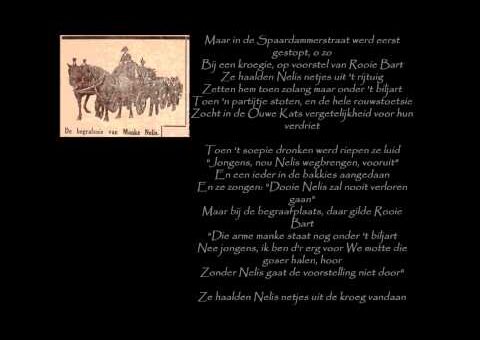 Maar in de Spaardammerstraat werd eerst
gestopt, o zo
Bij een kroegie, op voorstel van Rooie Bart
Ze haalden Nelis netjes uit 't rijtuig
Zetten hem toen zolang maar onder 't biljart
Toen 'n partijtje stoten, en de hele rouwstoetsie
Zocht in de Ouwe Kats vergetelijkheid voor hun
verdriet
De begrafenis van Manke Nelis.
Toen 't soepie dronken werd riepen ze luid
"Jongens, nou Nelis wegbrengen, vooruit"
En een ieder in de bakkies aangedaan
En ze zongen: "Dooie Nelis zal nooit verloren
gaan"
Maar bij de begraafplaats, daar gilde Rooie
Bart
"Die arme manke staat nog onder 't biljart
Nee jongens, ik ben d'r erg voor We motte die
goser halen, hoor
Zonder Nelis gaat de voorstelling niet door"
Ze haalden Nelis netjes uit de kroeg vandaan